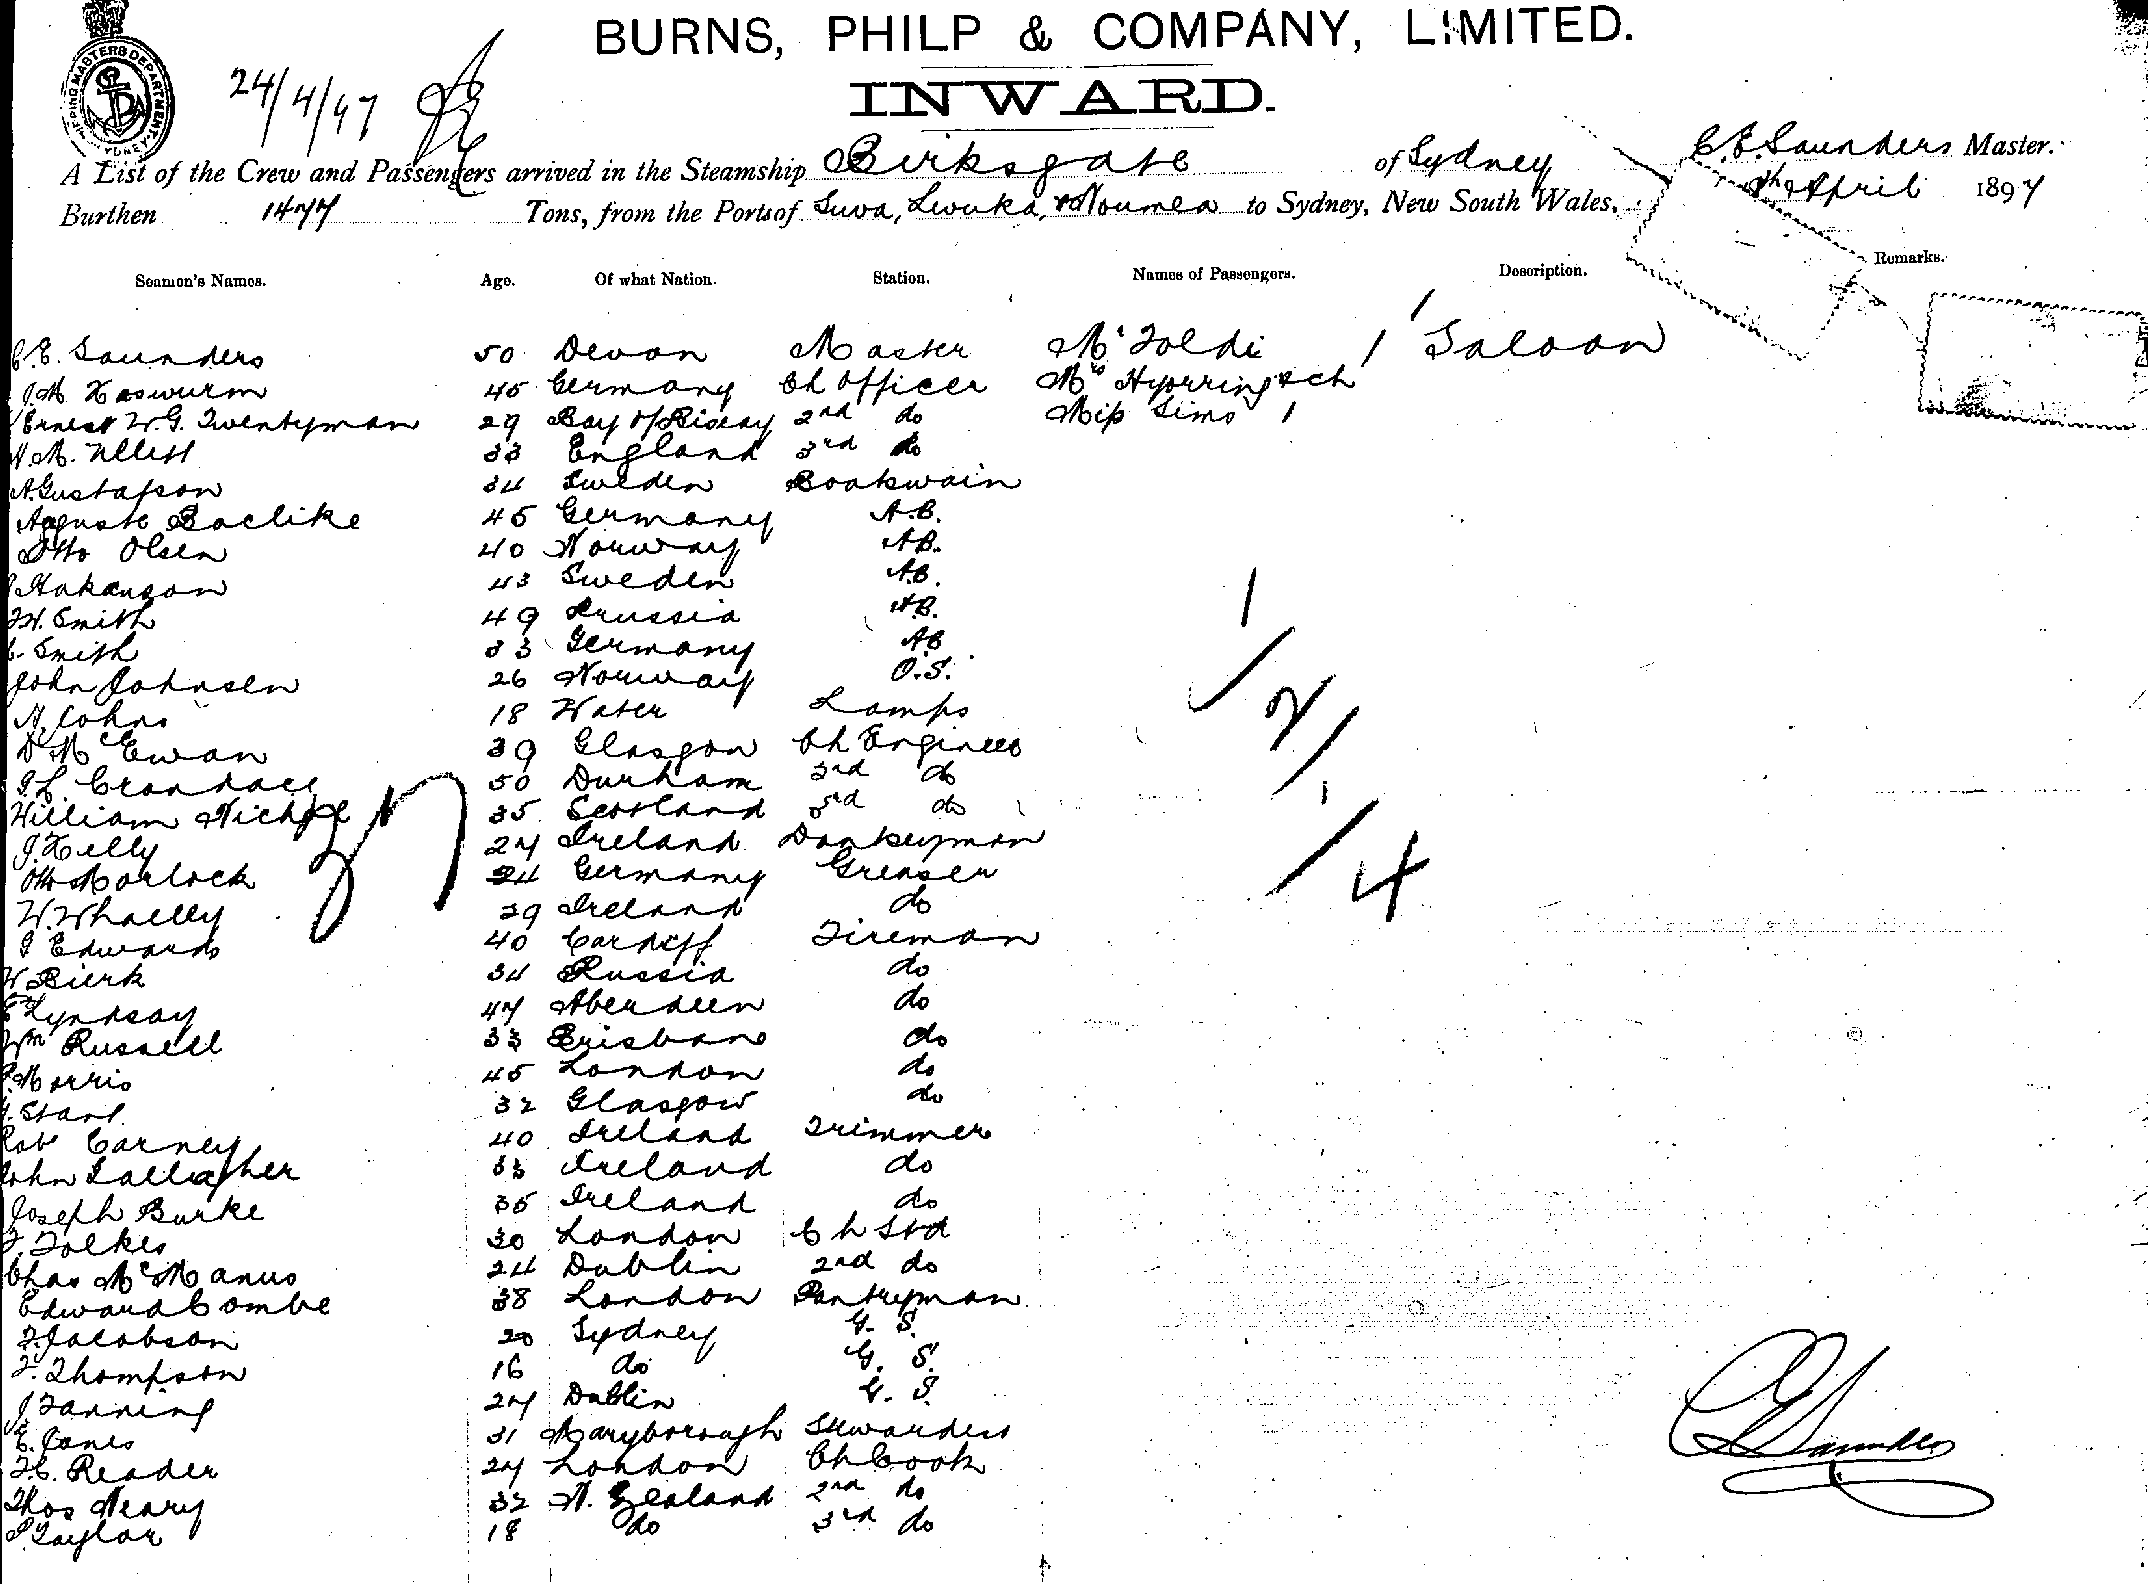 BURNS, PHILP & COMPANY, LIMITED.
INWARD.
SHIPPING MASTERS DEPARTMENT. SYDNEY
24/4/97
A List of the Crew and Passengers arrived in the Steamship Birksgate of Sydney C. E. Saunders Master.
Burthen 1477 Tons, from the Ports of Suva, Levuka, & Noumea to Sydney, New South Wales, April 1897
Seamen's Names. Age. Of what Nation. Station. Names of Passengers. Description. Remarks.
C. E. Saunders 50 Devon Master Mr Toldi 1 1 Saloon
J M Haswurm 45 Germany Ch Officer Mrs Hyorring & ch
Ernest W. G. Twentyman 29 Bay of Biscay 2nd do Miss Sims 1
H. M. 33 England 3rd do
A. Gustafson 34 Sweden Boatswain
Auguste Baelike 45 Germany A.B.
Otto Olsen 40 Norway A.B.
Hakanson 43 Sweden A.B.
F H. Smith 49 Prussia A.B.
Smith 33 Germany A B
John Johnsen 26 Norway O.S.
A Johns 18 Water Lamps
D McEwan 39 Glasgow Ch Engineer
J L Crondace 50 Durham 2nd do
William Nichol 35 Scotland 3rd do
J. Kelly 27 Ireland Donkeyman
Otto Morlock 24 Germany Greaser
W. Whaelly 29 Ireland do
J Edwards 40 Cardiff Fireman
W Bierk 34 Russia do
Lyndsay 47 Aberdeen do
Wm Russell 33 Brisbane do
Morris 45 London do
Start 32 Glasgow do
Robt Carney 40 Ireland Trimmer
John Gallagher 33 Ireland do
Joseph Burke 35 Ireland do
F. Folkes 30 London Ch Std
Chas McManus 24 Dublin 2nd do
Edward Combe 38 London Pantryman
F. Jacobson 20 Sydney G. S.
F. Thompson 16 do G. S.
J Fanning 27 Dublin G. S.
E. Jones 31 Maryborough Stewardess
F. C. Reader 27 London Ch Cook
Thos Neary 32 N. Zealand 2nd do
Taylor 18 do 3rd do
37
1
1/2/1/4
C E Saunders